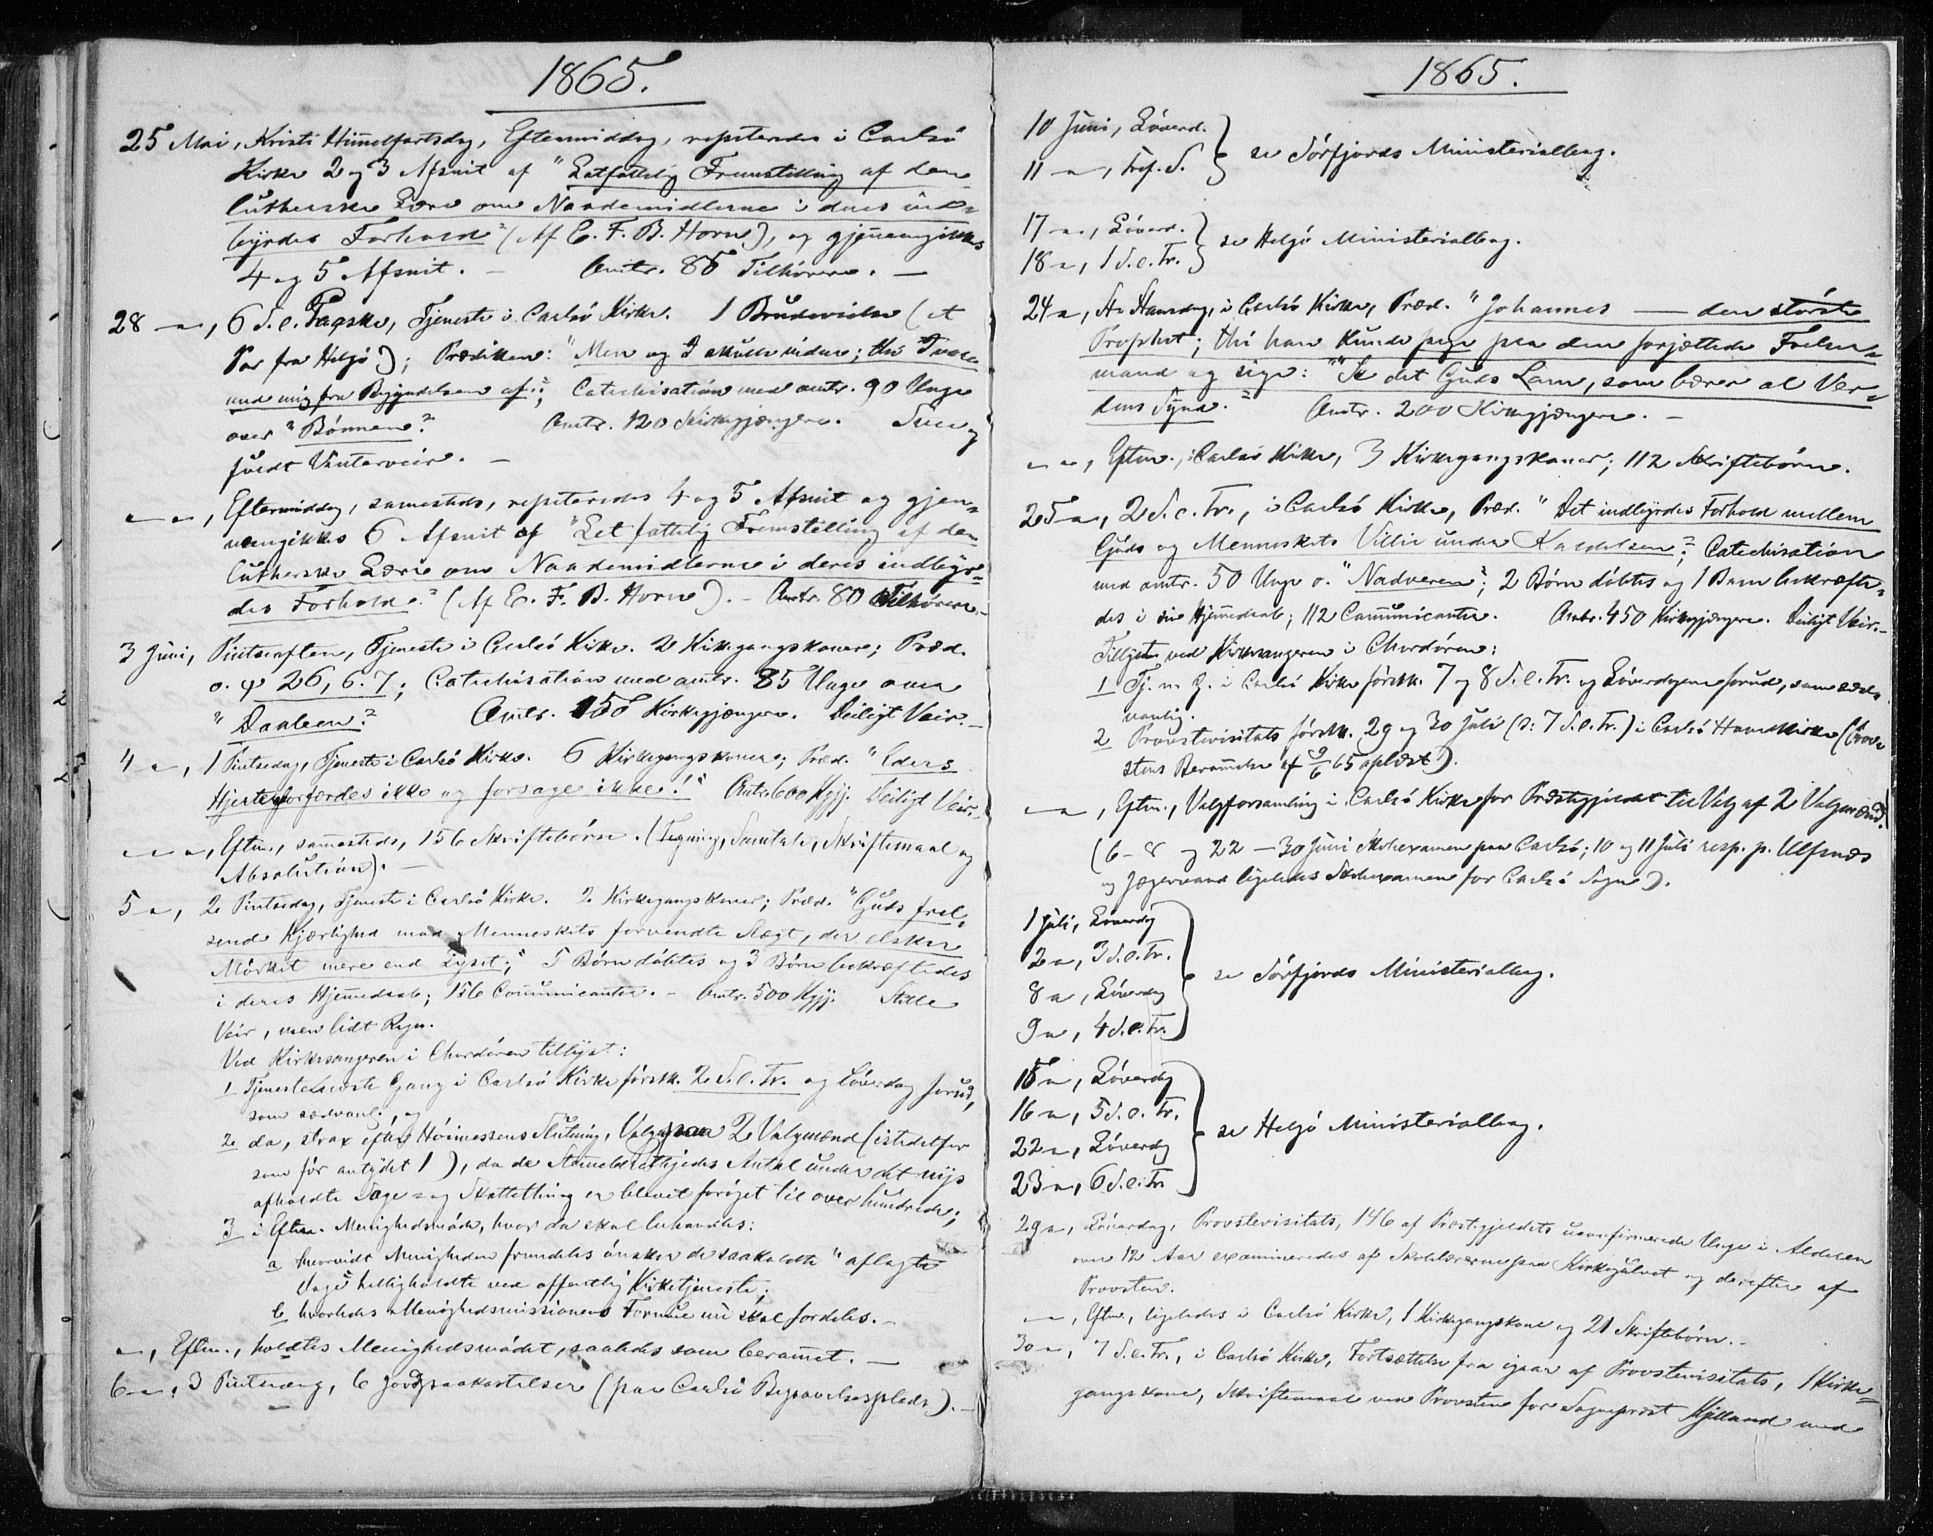 1865.
25 Mai, Kristi Himmelfartsdag, Eftermiddag, repeteredes i Carlsö
Kirke 2 og 3 Afsnit af "Letfattelig Fremstilling af den
lutherske Lære om Naademidlerne i deres ind-
byrdes Forhold" (Af E. F. B. Horn), og gjennemgikkes
4 og 5 Afsnit. — Omtr. 85 Tilhörere. —
28 — a, 6 S. e. Paaske, Tjeneste i Carlsö Kirke. 1 Brudevielse (et
Par fra Helgö); Prædiken: "Men og I skulle vidne; thi I vare
med mig fra Begyndelsen af."; Catechisation med omtr. 90 Unge
over "Bönnen." Omtr. 120 Kirkegjængere. Snee og
fuldt Vinterveir. —
— a, Eftermiddag, sammesteds, repeteredes 4 og 5 Afsnit og gjen-
nemgikkes 6 Afsnit af "Letfattelig Fremstilling af den
lutherske Lære om Naademidlerne i deres indbyr-
des Forhold." (Af E. F. B. Horn). — Omtr. 80 Tilhörere. —
3 Juni, Pintseaften, Tjeneste i Carlsö Kirke. 2 Kirkegangskoner; Præd.
o. ψ 26, 6. 7; Catechisation med omtr. 85 Unge over
"Daaben." Omtr. 150 Kirkegjængere. Deiligt Veir. —
4 — a, 1 Pintsedag, Tjeneste i Carlsö Kirke. 6 Kirkegangskoner; Præd. "Eders
Hjerte forfærdes ikke og forsage ikke!" Omtr. 600 Kgjg. Deiligt Veir. —
— a, Eftm., sammesteds, 156 Skriftebörn. (Tegning, Samtale, Skriftemaal og
Absolution). —
5 — a, 2 Pintsedag, Tjeneste i Carlsö Kirke. 2 Kirkegangskoner; Præd. "Guds frel-
sende Kjærlighed mod Menneskets forvendte Slægt, der elsker
Mörket mere end Lyset;" 5 Börn döbtes og 3 Börn bekræftedes
i deres Hjemmedaab; 156 Communicanter. — Omtr. 500 Kgjg. Stille
Veir, men lidt Regn.
Ved Kirkesangeren i Chordören tillyst:
1 Tjeneste næste Gang i Carlsö Kirke förstk. 2 S. e. Tr. og Löverdag forud,
som sædvanl., og
2 da, strax efter Höimessens Slutning, Valg paa 2 Valgmænd (istedetfor
som för antydet 1), da de Stemmeberettigedes Antal under det nys
afholdte Sage- og Skattething er blevet foröget til over hundrede;
3 i Eftm. Menighedsmöde, hvor da skal behandles:
a hvorvidt Menigheden fremdeles önsker de saakaldte "aflagte
Dage" helligholdte ved offentlig Kirketjeneste;
b hvorledes Menighedsmissionens Formue nu skal fordeles. —
— a, Eftm., holdtes Menighedsmödet, saaledes som berammet. —
6 — a, 3 Pintsedag, 6 Jordpaakastelser (paa Carlsö Begravelsesplads). —
1865.
10 Juni, Löverd.
11 — a, Tref. S.
se Sörfjords Ministerialbog.
17 — a, Löverd.
18 — a, 1 S. e. Tr.
se Helgö Ministerialbog.
24 — a, St. Hansdag, i Carlsö Kirke, Præd. "Johannes — den störste
Prophet; thi han kunde pege paa den forjættede Frelser-
mand og sige: "Se det Guds Lam, som bærer al Ver-
dens Synd." Omtr. 200 Kirkegjængere. —
— a, Eftm., i Carlsö Kirke, 3 Kirkegangskoner; 112 Skriftebörn.
25 — a, 2 S. e. Tr., i Carlsö Kirke, Præd. "Det indbyrdes Forhold mellem
Guds og Menneskets Villie under Kaldelsen."; Catechisation
med omtr. 50 Unge o. "Nadveren"; 2 Börn döbtes og 1 Barn bekræfte-
des i sin Hjemmedaab; 112 Communicanter. Omtr. 450 Kirkegjængere. Deiligt Veir. —
Tillyst ved Kirkesangeren i Chordören:
1 Tj. n. G. i Carlsö Kirke förstk. 7 og 8 S. e. Tr. og Löverdagene forud, som sæd-
vanlig.
2 Provstevisitats förstk. 29 og 30 Juli (ɔ: 7 S. e. Tr.) i Carlsö Hovedkirke (Prov-
stens Berammelse af 9/6 65 oplæst).
— a, Eftm., Valgforsamling i Carlsö Kirke for Præstegjeldet til Valg af 2 Valgmænd.
(6 – 8 og 22 — 30 Juni Skoleexamen paa Carlsö; 10 og 11 Juli resp. p. Ulfsnæs
og Jægervand ligeledes Skoleexamen for Carlsö Sogn).
1 Juli, Löverdag
2 — a, 3 S. e. Tr.
8 — a, Löverdag
9 — a, 4 S. e. Tr.
se Sörfjords Ministerialbog.
15 — a, Löverdag
16 — a, 5 S. e. Tr.
22 — a, Löverdag
23 — a, 6 S. e. Tr.
se Helgö Ministerialbog.
29 — a, Löverdag, Provstevisitats, 146 af Præstegjeldets uconfirmerede Unge i Alderen
over 12 Aar examineredes af Skolelærerne paa Kirkegulvet og derefter af
Provsten.
— a, Eftm., ligeledes i Carlsö Kirke, 1 Kirkegangskone og 21 Skriftebörn. —
30 — a, 7 S. e. Tr., i Carlsö Kirke, Fortsættelse fra igaar af Provstevisitats, 1 Kirke-
gangskone, Skriftemaal ved Provsten for Sognepræst Kjelland med